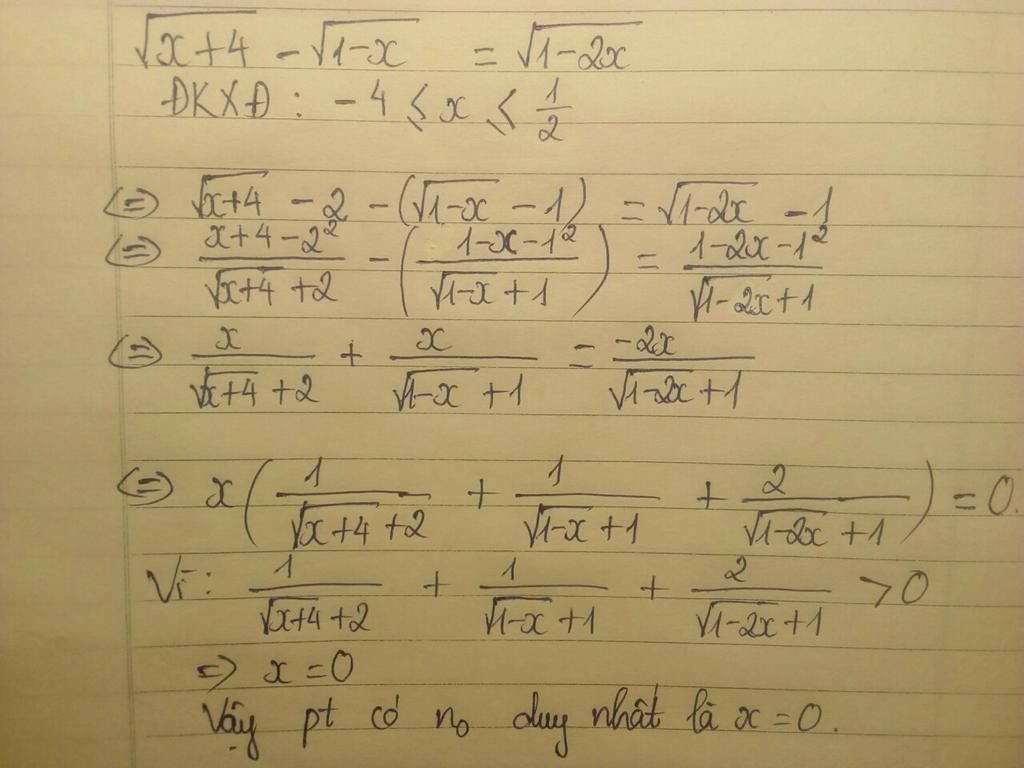 √(x+4) - √(1-x) = √(1-2x)
ĐKXĐ: -4 ≤ x ≤ 1/2
⇔ √(x+4) - 2 - (√(1-x) - 1) = √(1-2x) - 1
⇔ (x+4-2²)/(√(x+4) + 2) - ((1-x-1²)/(√(1-x) + 1)) = (1-2x-1²)/(√(1-2x) + 1)
⇔ x/(√(x+4) + 2) + x/(√(1-x) + 1) = -2x/(√(1-2x) + 1)
⇔ x(1/(√(x+4) + 2) + 1/(√(1-x) + 1) + 2/(√(1-2x) + 1)) = 0.
Vì: 1/(√(x+4) + 2) + 1/(√(1-x) + 1) + 2/(√(1-2x) + 1) > 0
⇒ x = 0
Vậy pt có no duy nhất là x = 0.